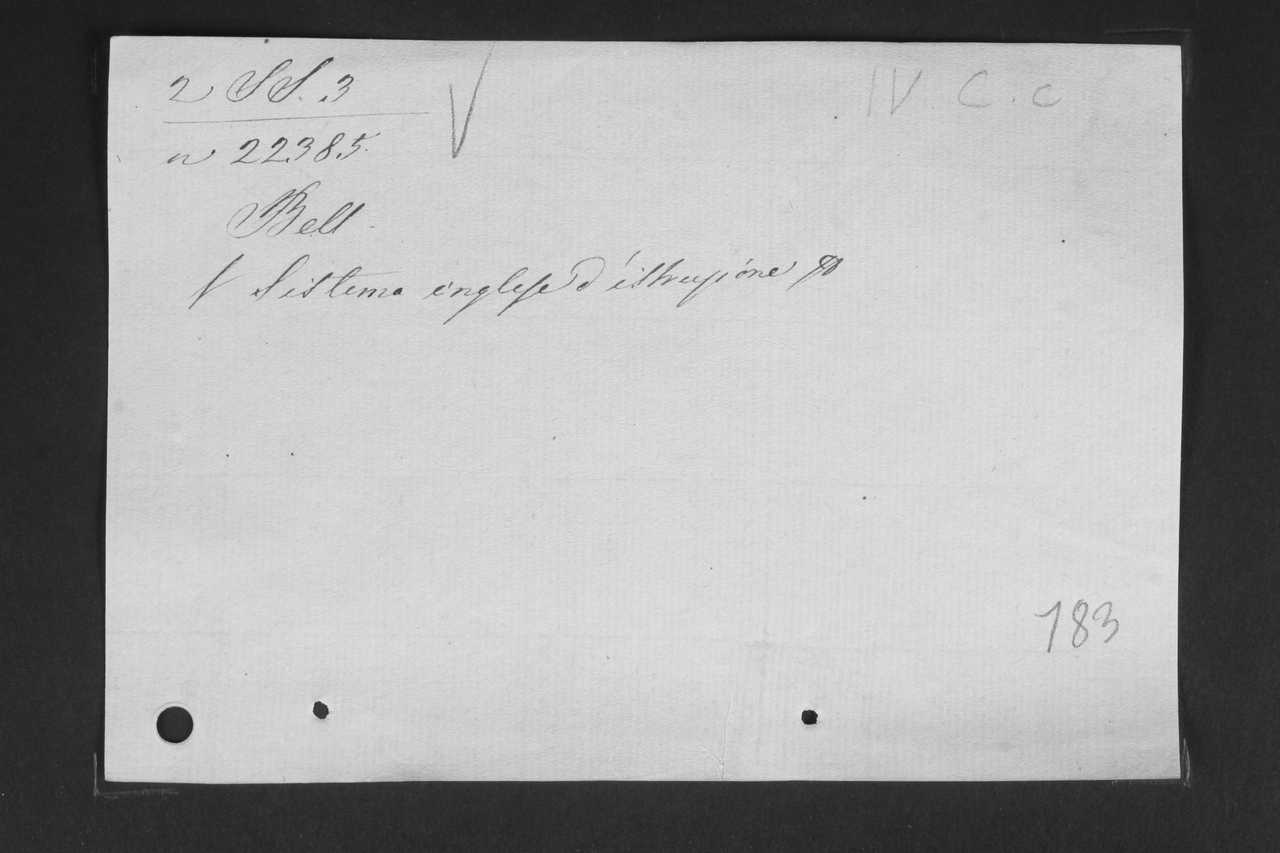 2 SS. 3
IV. C. c
n 22385.
Bell
Sistema inglese d'istruzione
183